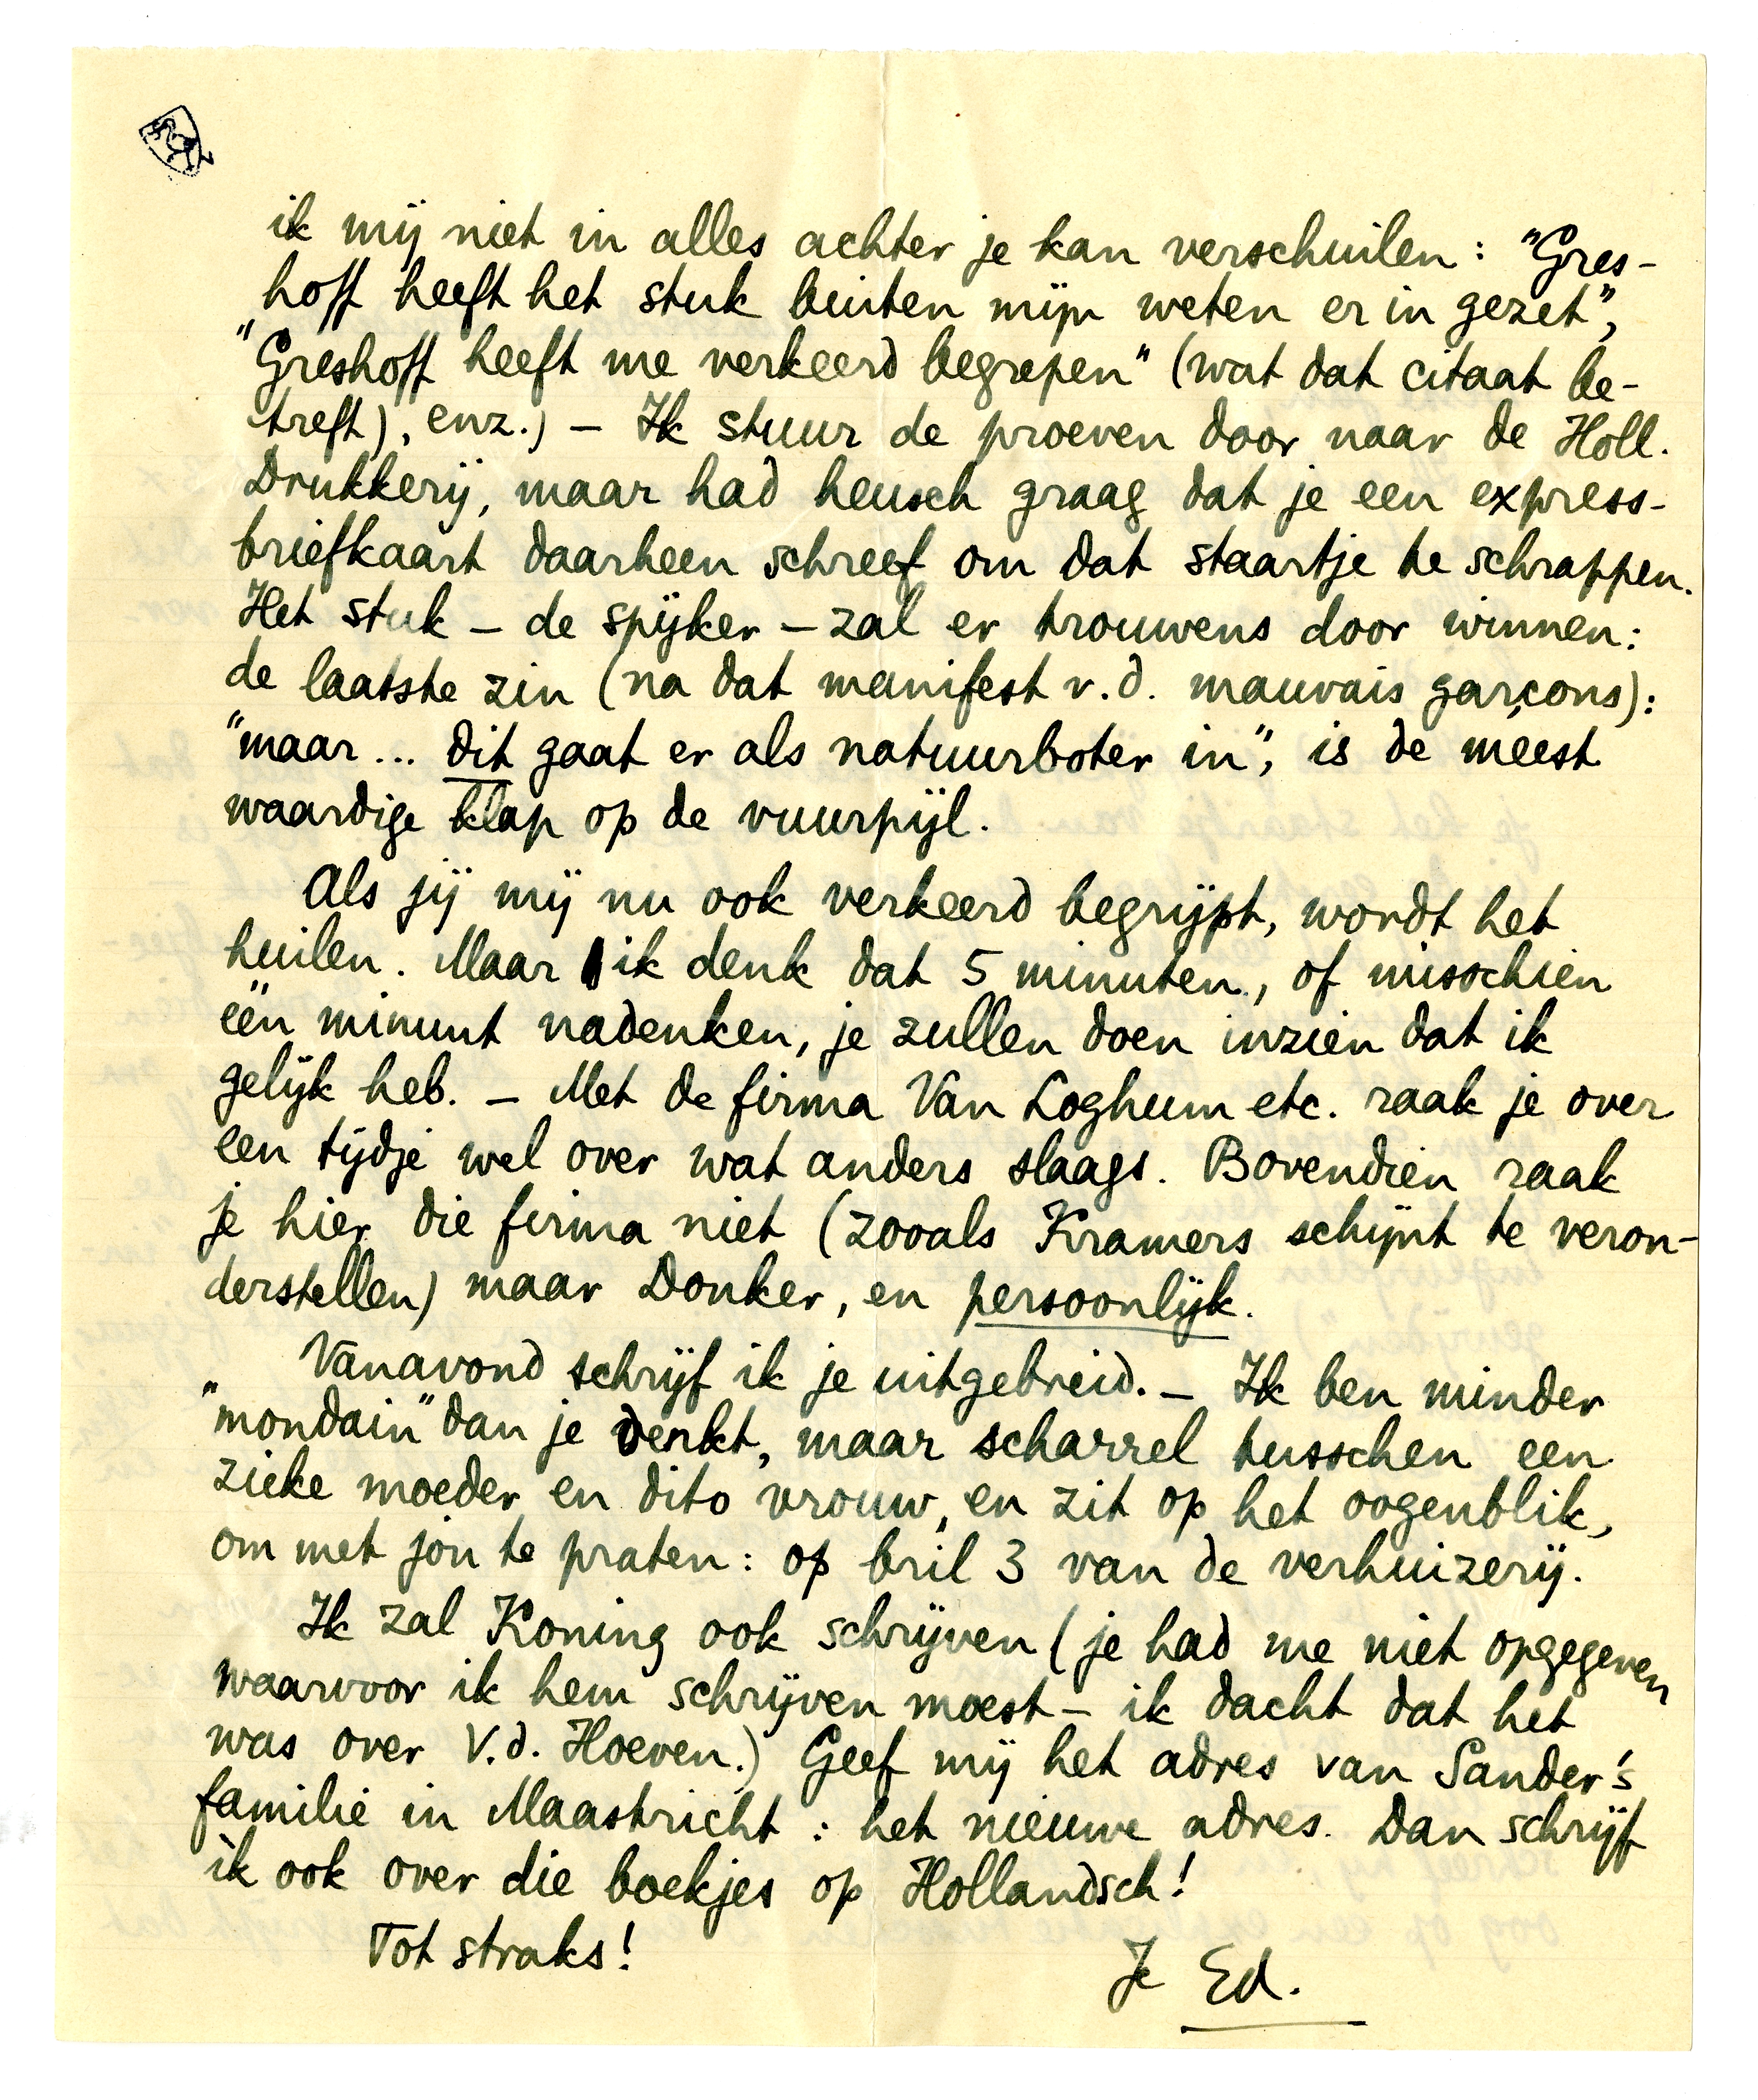 ik mij niet in alles achter je kan verschuilen: "Gres-
hoff heeft het stuk buiten mijn weten er in gezet",
"Greshoff heeft me verkeerd begrepen" (wat dat citaat be-
treft), enz.) – Ik stuur de proeven door naar de Holl.
Drukkerij, maar had heusch graag dat je een express-
briefkaart daarheen schreef om dat staartje te schrappen.
Het stuk – de spijker – zal er trouwens door winnen:
de laatste zin (na dat manifest v.d. mauvais garçons):
"maar... dit gaat er als natuurboter in", is de méést
waardige klap op de vuurpijl.
Als jij mij nu ook verkeerd begrijpt, wordt het
huilen. Maar ik denk dat 5 minuten, of misschien
één minuut nadenken, je zullen doen inzien dat ik
gelijk heb. – Met de firma Van Loghum etc. raak je over
een tijdje wel over wat anders slaags. Bovendien raak
je hier die firma niet (zooals Kramers schijnt te veron-
derstellen) maar Donker, en persoonlijk.
Vanavond schrijf ik je uitgebreid. – Ik ben minder
"mondain" dan je denkt, maar scharrel tusschen een
zieke moeder en dito vrouw, en zit op het oogenblik,
om met jou te praten: op bril 3 van de verhuizerij.
Ik zal Koning ook schrijven (je had me niet opgegeven
waarvoor ik hem schrijven moest – ik dacht dat het
was over V.d. Hoeven.) Geef mij het adres van Sander's
familie in Maastricht: het nieuwe adres. Dan schrijf
ik ook over die boekjes op Hollandsch!
Tot straks!
Je Ed.